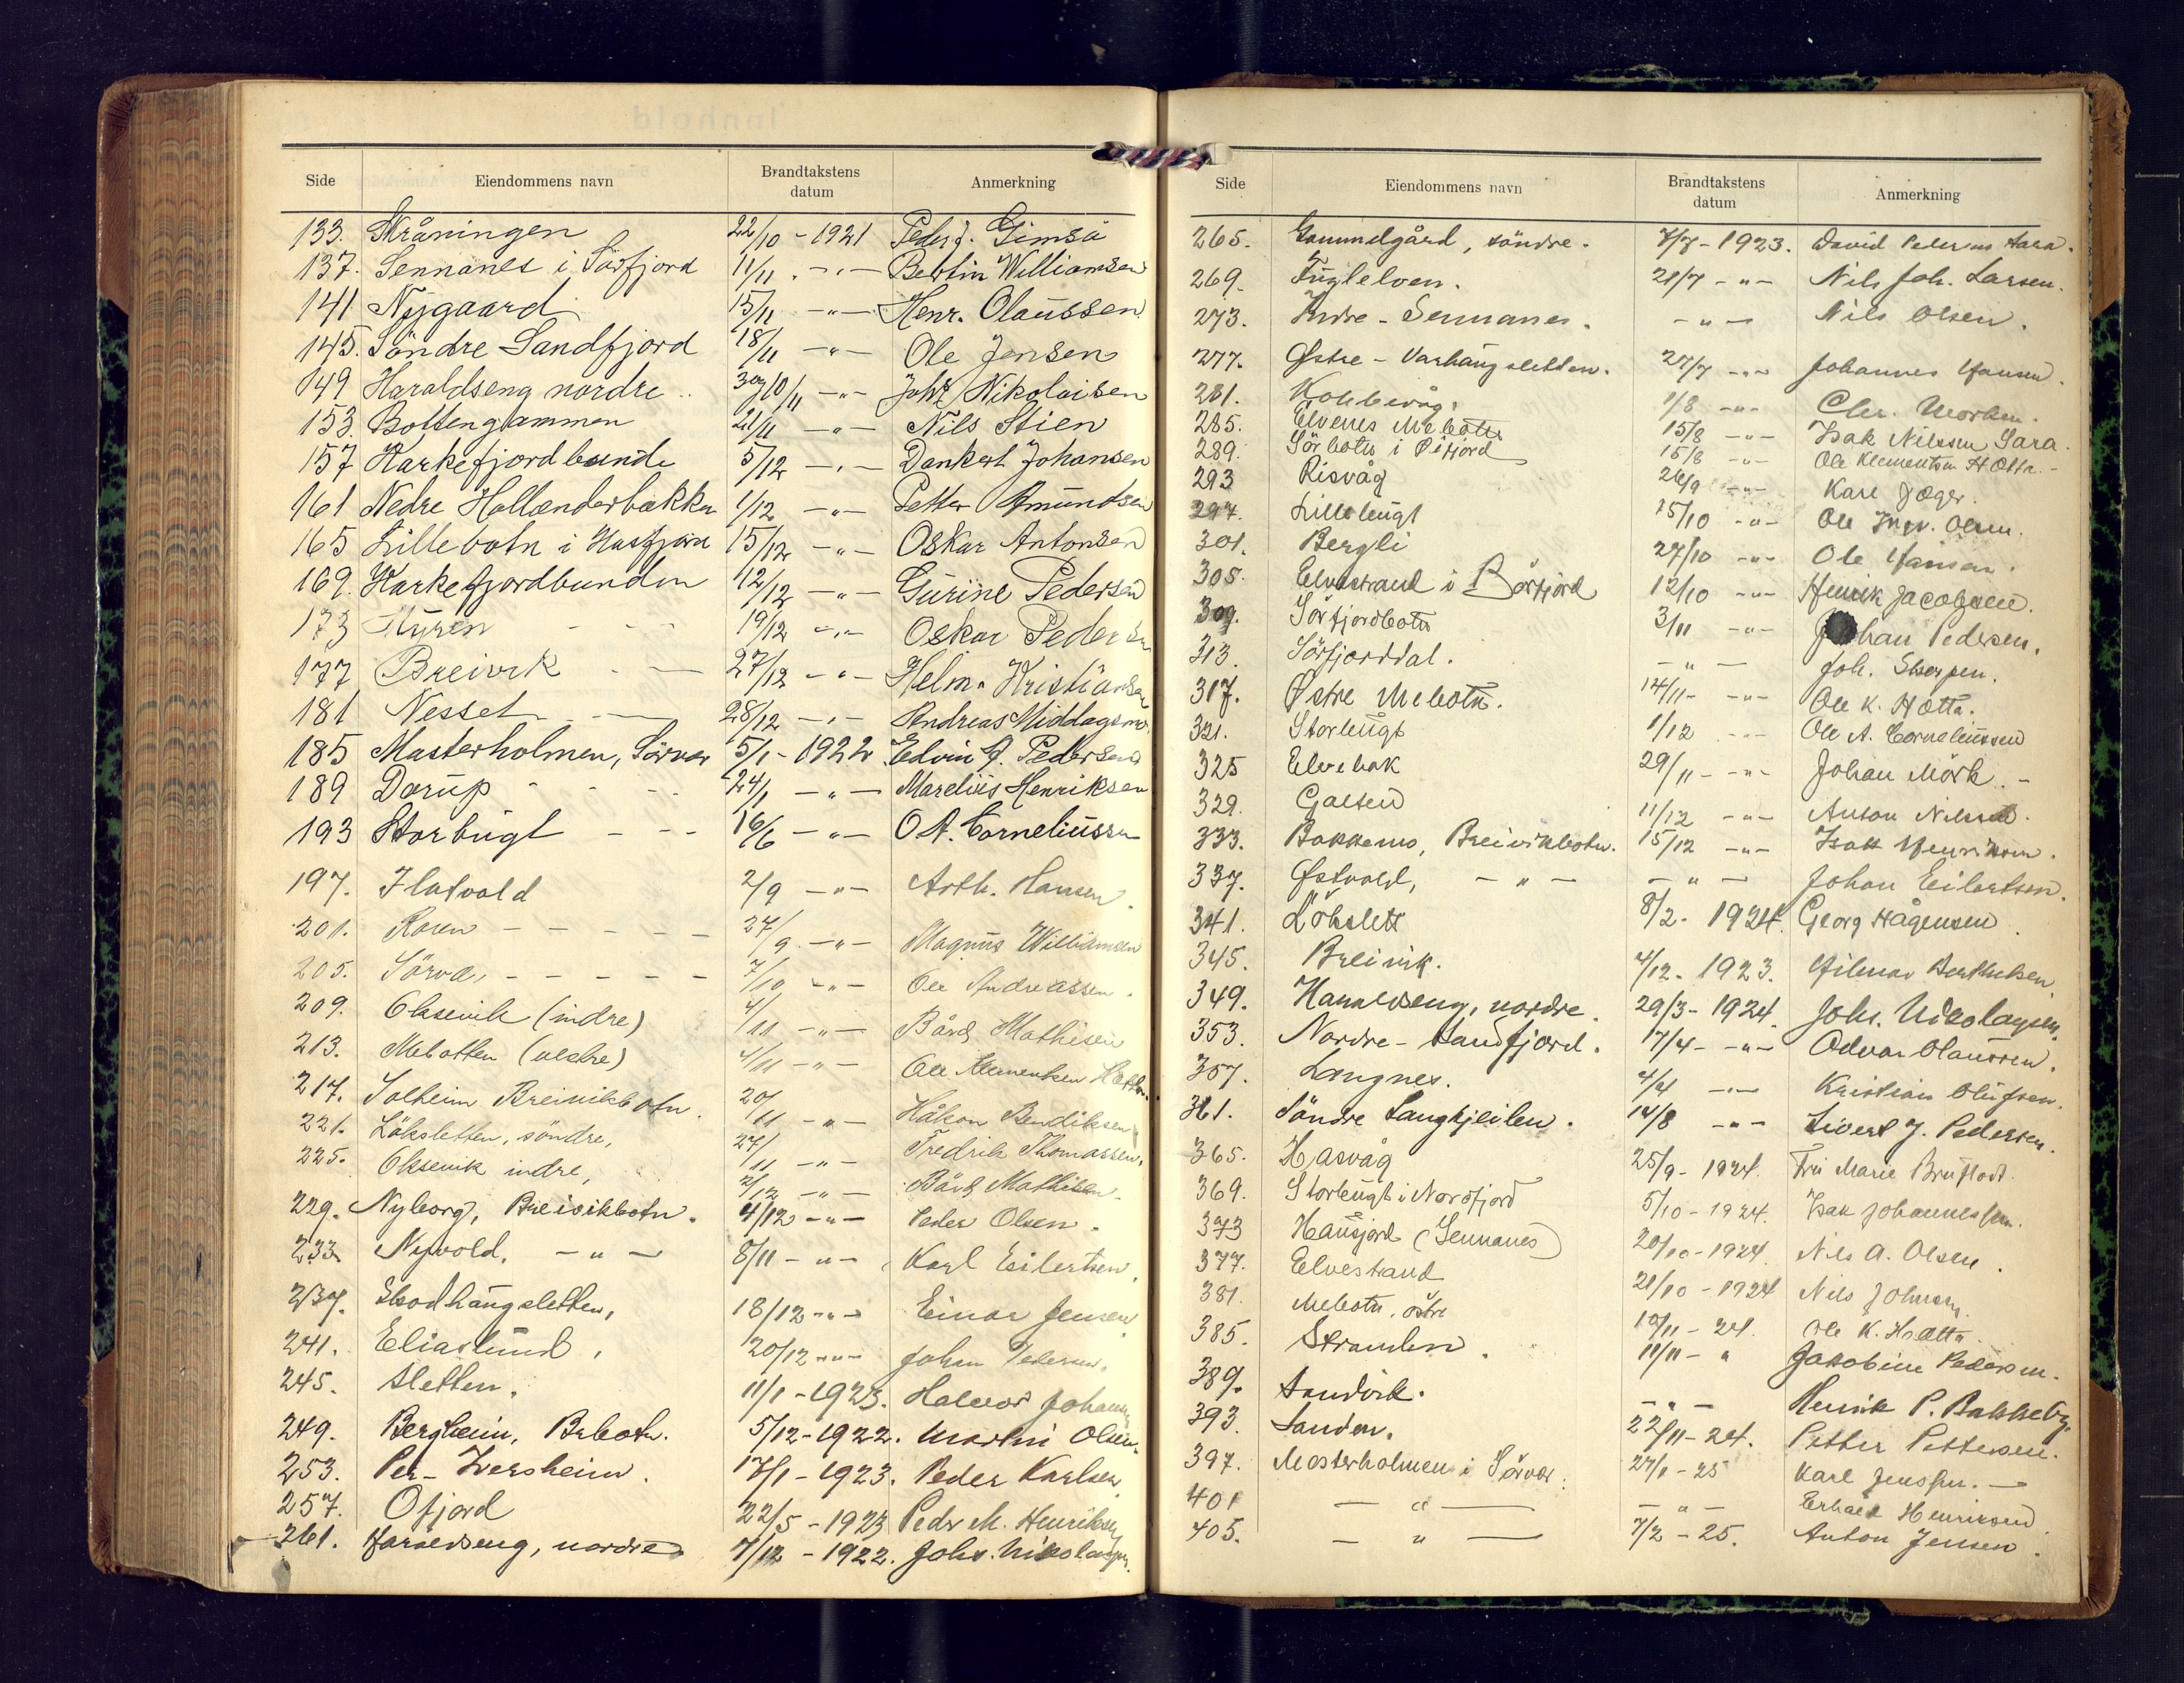 Side Eiendommens navn Brandtakstens datum Anmerkning
133. Skråningen 22/10 - 1921 Peder J. Simsö
137. Sennanes i Sörfjord 11/11 - " - Bertin Williamsen
141 Nygaard 15/11 - " - Henr. Olaussen
145. Söndre Sandfjord 18/11 - " - Ole Jensen
149 Haraldseng nordre 30/11 - " - Johs Nikolaisen
153. Bottenglammen 21/11 - " - Nils Stien
157 Karkefjordbunde 5/12 - " - Dankert Johansen
161 Nedre Hollenderbakken 1/12 - " - Petter Amundsen
165 Lillebotn i Hasfjord 15/12 - " - Oskar Antonsen
169. Karkefjordbunden 12/12 - " - Gurine Pedersen
173 19/12 - " - Oskar Pedersen
177 Breivik - - 27/12 - " - Helm. Kristiansen
181 Nesset - - 28/12 - " - Andreas Middagsnes
185 Masterholmen, Sörvær 5/1 - 1922 Edvin J. Pedersen
189 Dorup - - - 24/1 - " - Marelius Henriksen
193 Storbugt - - - 16/6 - " - O A. Corneliussen
197. Flatvold 2/9 - " - Arth. Hansen.
201. Roren - - - - - 27/9 - " - Magnus Williamsen
205. Sörvær, - - - - - 7/10 - " - Ole Andreassen.
209. Oksevik (indre) 4/11 - " - Bård Mathisen
213. Mebotten (vestre) 4/11 - " - Ole Klementsen Hætta.
217. Solheim Breivikbotn. 20/11 - " - Håkon Bendiksen
221. Löksletten, söndre, 27/11 - " - Fredrik Thomassen.
225. Oksevik indre, 2/12 - " - Bård Mathisen.
229. Nyborg, Breivikbotn. 4/12 - " - Peder Olsen.
233. Nyvold, - " - 8/11 - " - Karl Eilertsen.
237. Skodhaugsletten, 18/12 - " - Einar Jensen
241. Eliaslund, 20/12 - " - Johan Pedersen,
245. Sletten. 11/1 - 1923. Halvor Johansen
249. Bergheim, Brbotn. 5/12 - 1922. Martin Olsen.
253. Per-Iversheim. 17/1 - 1923. Peder Karlsen
257. Ofjord 22/5 - 1923 Pedr M. Henriksen
261. Haraldseng, nordre 7/12 - 1922. Johs. Nikolaysen.
Side Eiendommens navn Brandtakstens datum Anmerkning
265. Gammelgård, söndre. 7/7 - 1923. David Pedersen Sara.
269. Fuglelven. 21/7 - " - Nils Joh. Larsen.
273. Indre - Sennanes. - " - Nils Olsen.
277. Østre - Varhaugsletten. 27/7 - " - Johannes Hansen.
281. Kobbevåg. 1/8 - " - Chr. Morken.
285. Elvenes Mebotn 15/8 - " - Isak Nilssen Sara.
289. Sörbotn i Öifjord 15/8 - " - Ole Klementsen Hætta. -
293 Risvåg 26/9 - " - Karl Jæger.
297. Lillebugt 15/10 - " - Ole Ingv. Olsen.
301. Bergli 27/10 - " - Ole Hansen.
305. Elvestrand i Börfjord 12/10 - " - Henrik Jacobsen.
309. Sörfjordbotn 3/11 - " - Johan Pedersen.
313. Sörfjorddal. - " - Joh. Skarpen.
317. Østre Mebotn. 14/11 - " - Ole K. Hætta.
321. Storbugt 1/12 - " - Ole A. Corneliussen
325 Elvebak 29/11 - " - Johan Mörk. -
329. Galten 11/12 - " - Anton Nilssen.
333. Bakkemo, Breivikbotn. 15/12 - " - Isak Henriksen.
337. Østvold, - " - - " - Johan Eilertsen.
341. Lökslett 8/2 - 1924. Georg Hågensen
345. Breivik. 4/12 - 1923. Hilmar Berthelsen
349. Haraldseng, nordre. 29/3 - 1924. Johs. Nikolaysen.
353. Nordre - Sandfjord. 17/4 - " - Odvar Olaussen.
357. Langnes. 4/4 - " - Kristian Olufsen.
361. Söndre Langkjeilen. 14/8 - " - Sivert J. Pedersen.
365. Hasvåg 25/9 - 1924. Fru Marie Bruflodt.
369. Storbugt i Norsfjord 5/10 - 1924. Isak Johannessen.
373 Hausjord (Sennanes) 20/10 - 1924. Nils A. Olsen.
377. Elvestrand 21/10 - 1924 Nils Johnsen
381. Mebotn, östre 10/11 - 24. Ole K. Hætta.
385. Stranden. 11/11 - " Jakobine Pedersen.
389. Sandvik. - " - Henrik P. Bakkeby
393. Sanden. 22/11 - 24. Petter Pettersen.
397. Masterholmen i Sörvær. 27/1 - 25 Karl Jenssen. -
401 - " - - " - Erhard Henriksen.
405. - " - 7/2 - 25. Anton Jensen.